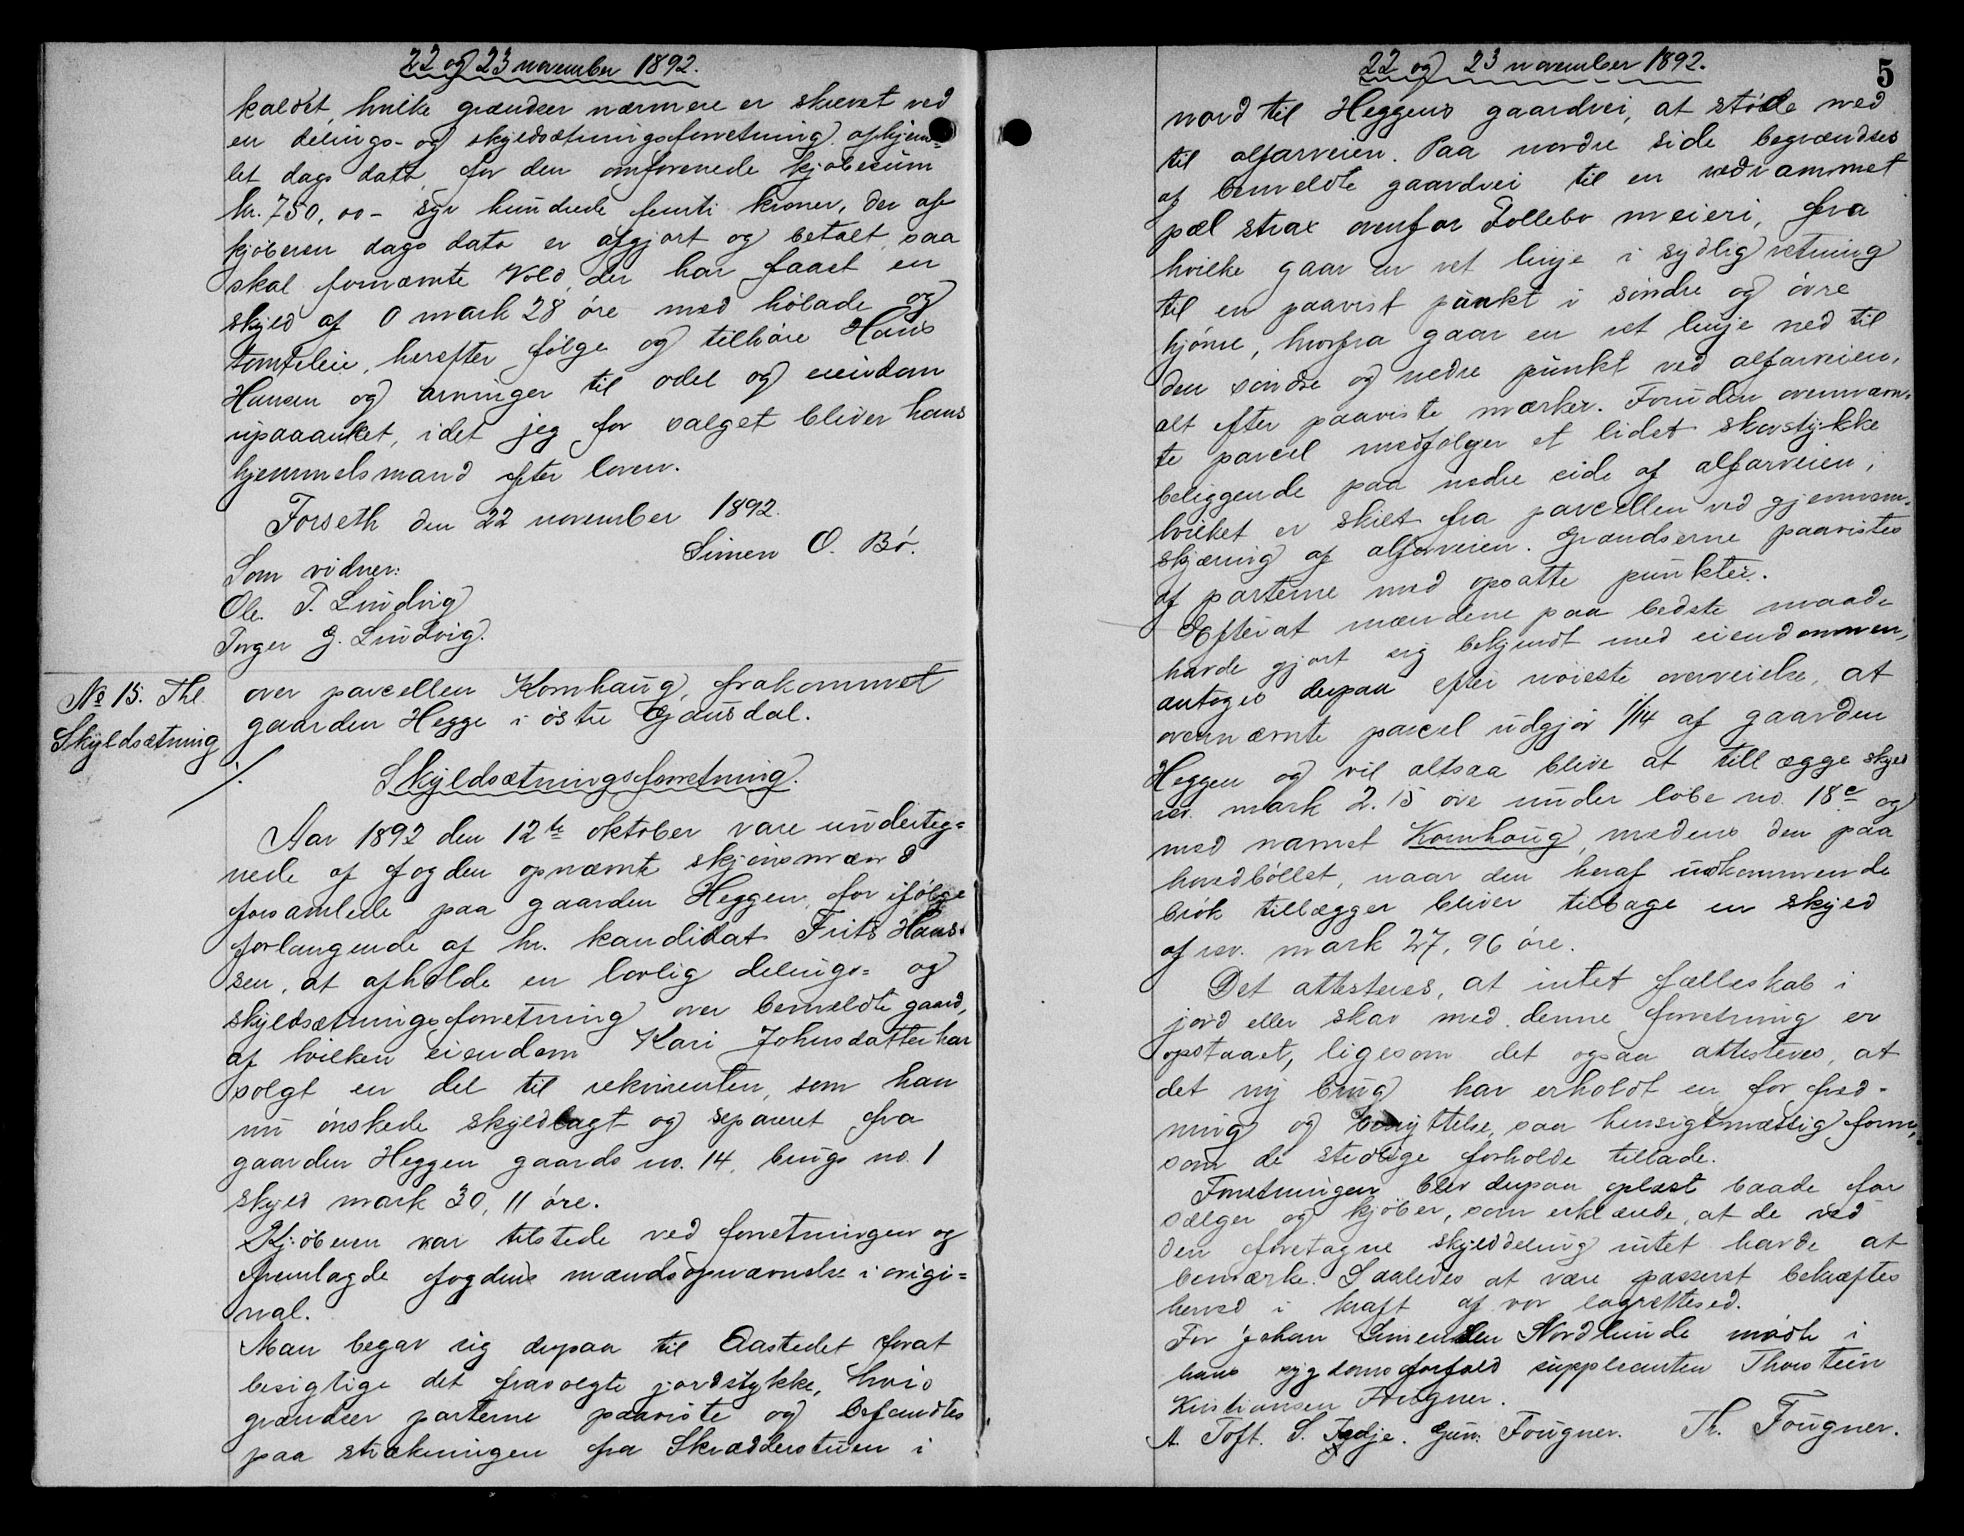 22 og 23 november 1892.
kaldet, hvilke grændser nærmere er skrevet ved
en delings- og skyldsætningsforretning afhjem-
let dags dato, for den omforenede kjøbesum
kr. 750,00 - syv hundrede femti kroner, der af
kjøberen dags dato er afgjort og betalt, saa
skal fornævnte Vold, der har faaet en
skyld af 0 mark 28 øre med hølade og
tomteleie, herefter følge og tilhøre Hans
Hansen og arvinger til odel og eiendom
upaaanket, idet jeg for salget bliver hans
hjemmelsmand efter loven.
Forseth den 22 november 1892.
Simen O. Bø.
Som vidner:
Ole T. Lindvig
Torger G. Lindvig.
No 15. Thl.
Skyldsætning
over parcellen Kornhaug, frakommet
gaarden Hegge i østre Gausdal.
Skyldsætningsforretning.
Aar 1892 den 12te oktober vare underteg=
nede af fogden opnævnte skjønsmænd
forsamlede paa gaarden Heggen, for ifølge
forlangende af hr. kandidat Frits Hans-
sen, at afholde en lovlig delings= og
skyldsætningsforretning over bemeldte gaard,
af hvilken eiendom Kari Johnsdatter har
solgt en del til rekvirenten, som han
nu ønskede skyldlagt og separeret fra
gaarden Heggen gaards no. 14, brugs no. 1
skyld mark 30,11 øre.
Kjøberen var tilstede ved forretningen og
fremlagde fogdens mændsopnævnelse i origi=
nal.
Man begav sig derpaa til Aastedet forat
besigtige det frasolgte jordstykke, hvis
grændser parterne paaviste og befandtes
paa strækningen fra Skrædderstuen i
22 og 23 november 1892.
5
nord til Heggens gaardvei, at støde ned
til alfarveien. Paa nordre side begrændses
af bemeldte gaardvei til en nedrammet
pæl strax ovenfor Follebo meieri, fra
hvilke gaar en ret linje i sydlig retning
til en paavist punkt i søndre og øvre
hjørne, hvorfra gaar en ret linje ned til
den søndre og nedre punkt ved alfarveien,
alt efter paaviste mærker. Foruden ovennævn-
te parcel medfølger et lidet skovstykke
beliggende paa nedre side af alfarveien,
hvilket er skilt fra parcellen ved gjennem-
skjæring af alfarveien. Grændserne paavistes
af parterne med opsatte punkter.
Efterat mændene paa bedste maade
havde gjort sig bekjendt med eiendommen,
antoges derpaa efter nøieste overveielse, at
ovennævnte parcel udgjør 1/14 af gaarden
Heggen og vil altsaa blive at tillægge skyld
rev. mark 2.15 øre under løbe no. 18c og
med navnet Kornhoug, medens den paa
hovedbøllet, naar den heraf udkommende
brøk tillægger bliver tilbage en skyld
af rev. mark 27,96 øre.
Det attesteres, at intet fælleskab i
jord eller skov med denne forretning er
opstaaet, ligesom det ogsaa attesteres, at
det ny brug har erholdt en for fred-
ning og benyttelse saa hensigtmæssig form,
som de stedlige forholde tillade.
Forretningen blev derpaa oplæst baade for
sælger og kjøber, som erklærede, at de ved
den foretagne skylddeling intet havde at
bemærke. Saaledes at være passeret bekræftes
herved i kraft af vor lagrettesed.
For Johan Simensen Nordlunde mødte i
hans sygdomsforfald suppleanten Thorstein
Kristiansen Fougner.
A. Toft. S. Tedje. Gun: Fougner. Th. Fougner.